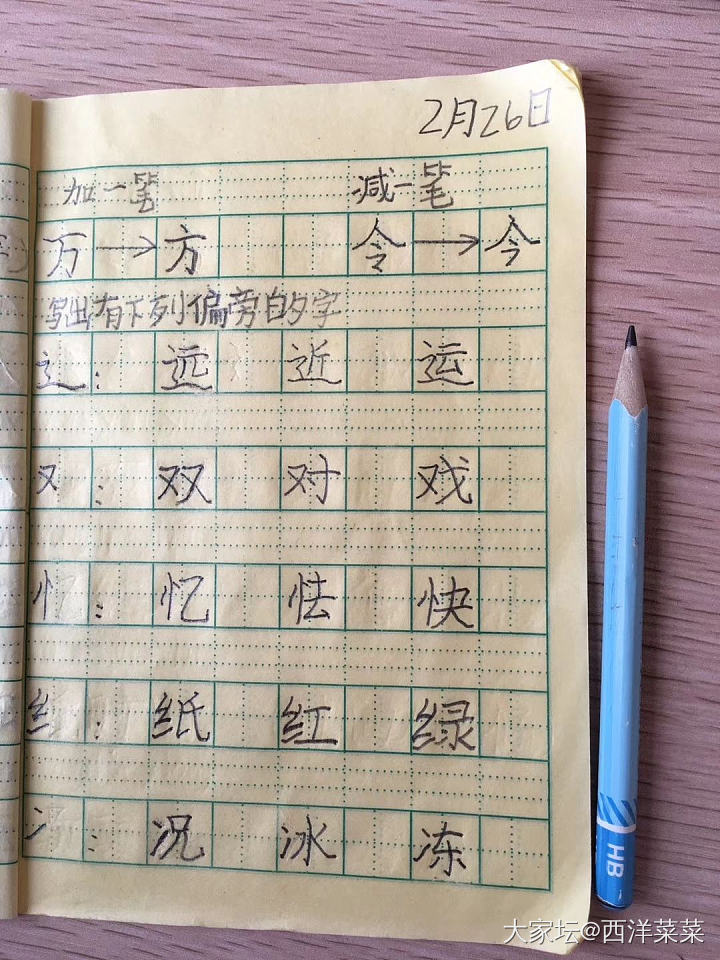 2月26日
加一笔 减一笔
万→方 令→今
写出有下列偏旁的字
辶: 远 近 运
又: 双 对 戏
忄: 忆 怯 快
纟: 纸 红 绿
冫: 况 冰 冻
HB
大家坛@西洋菜菜